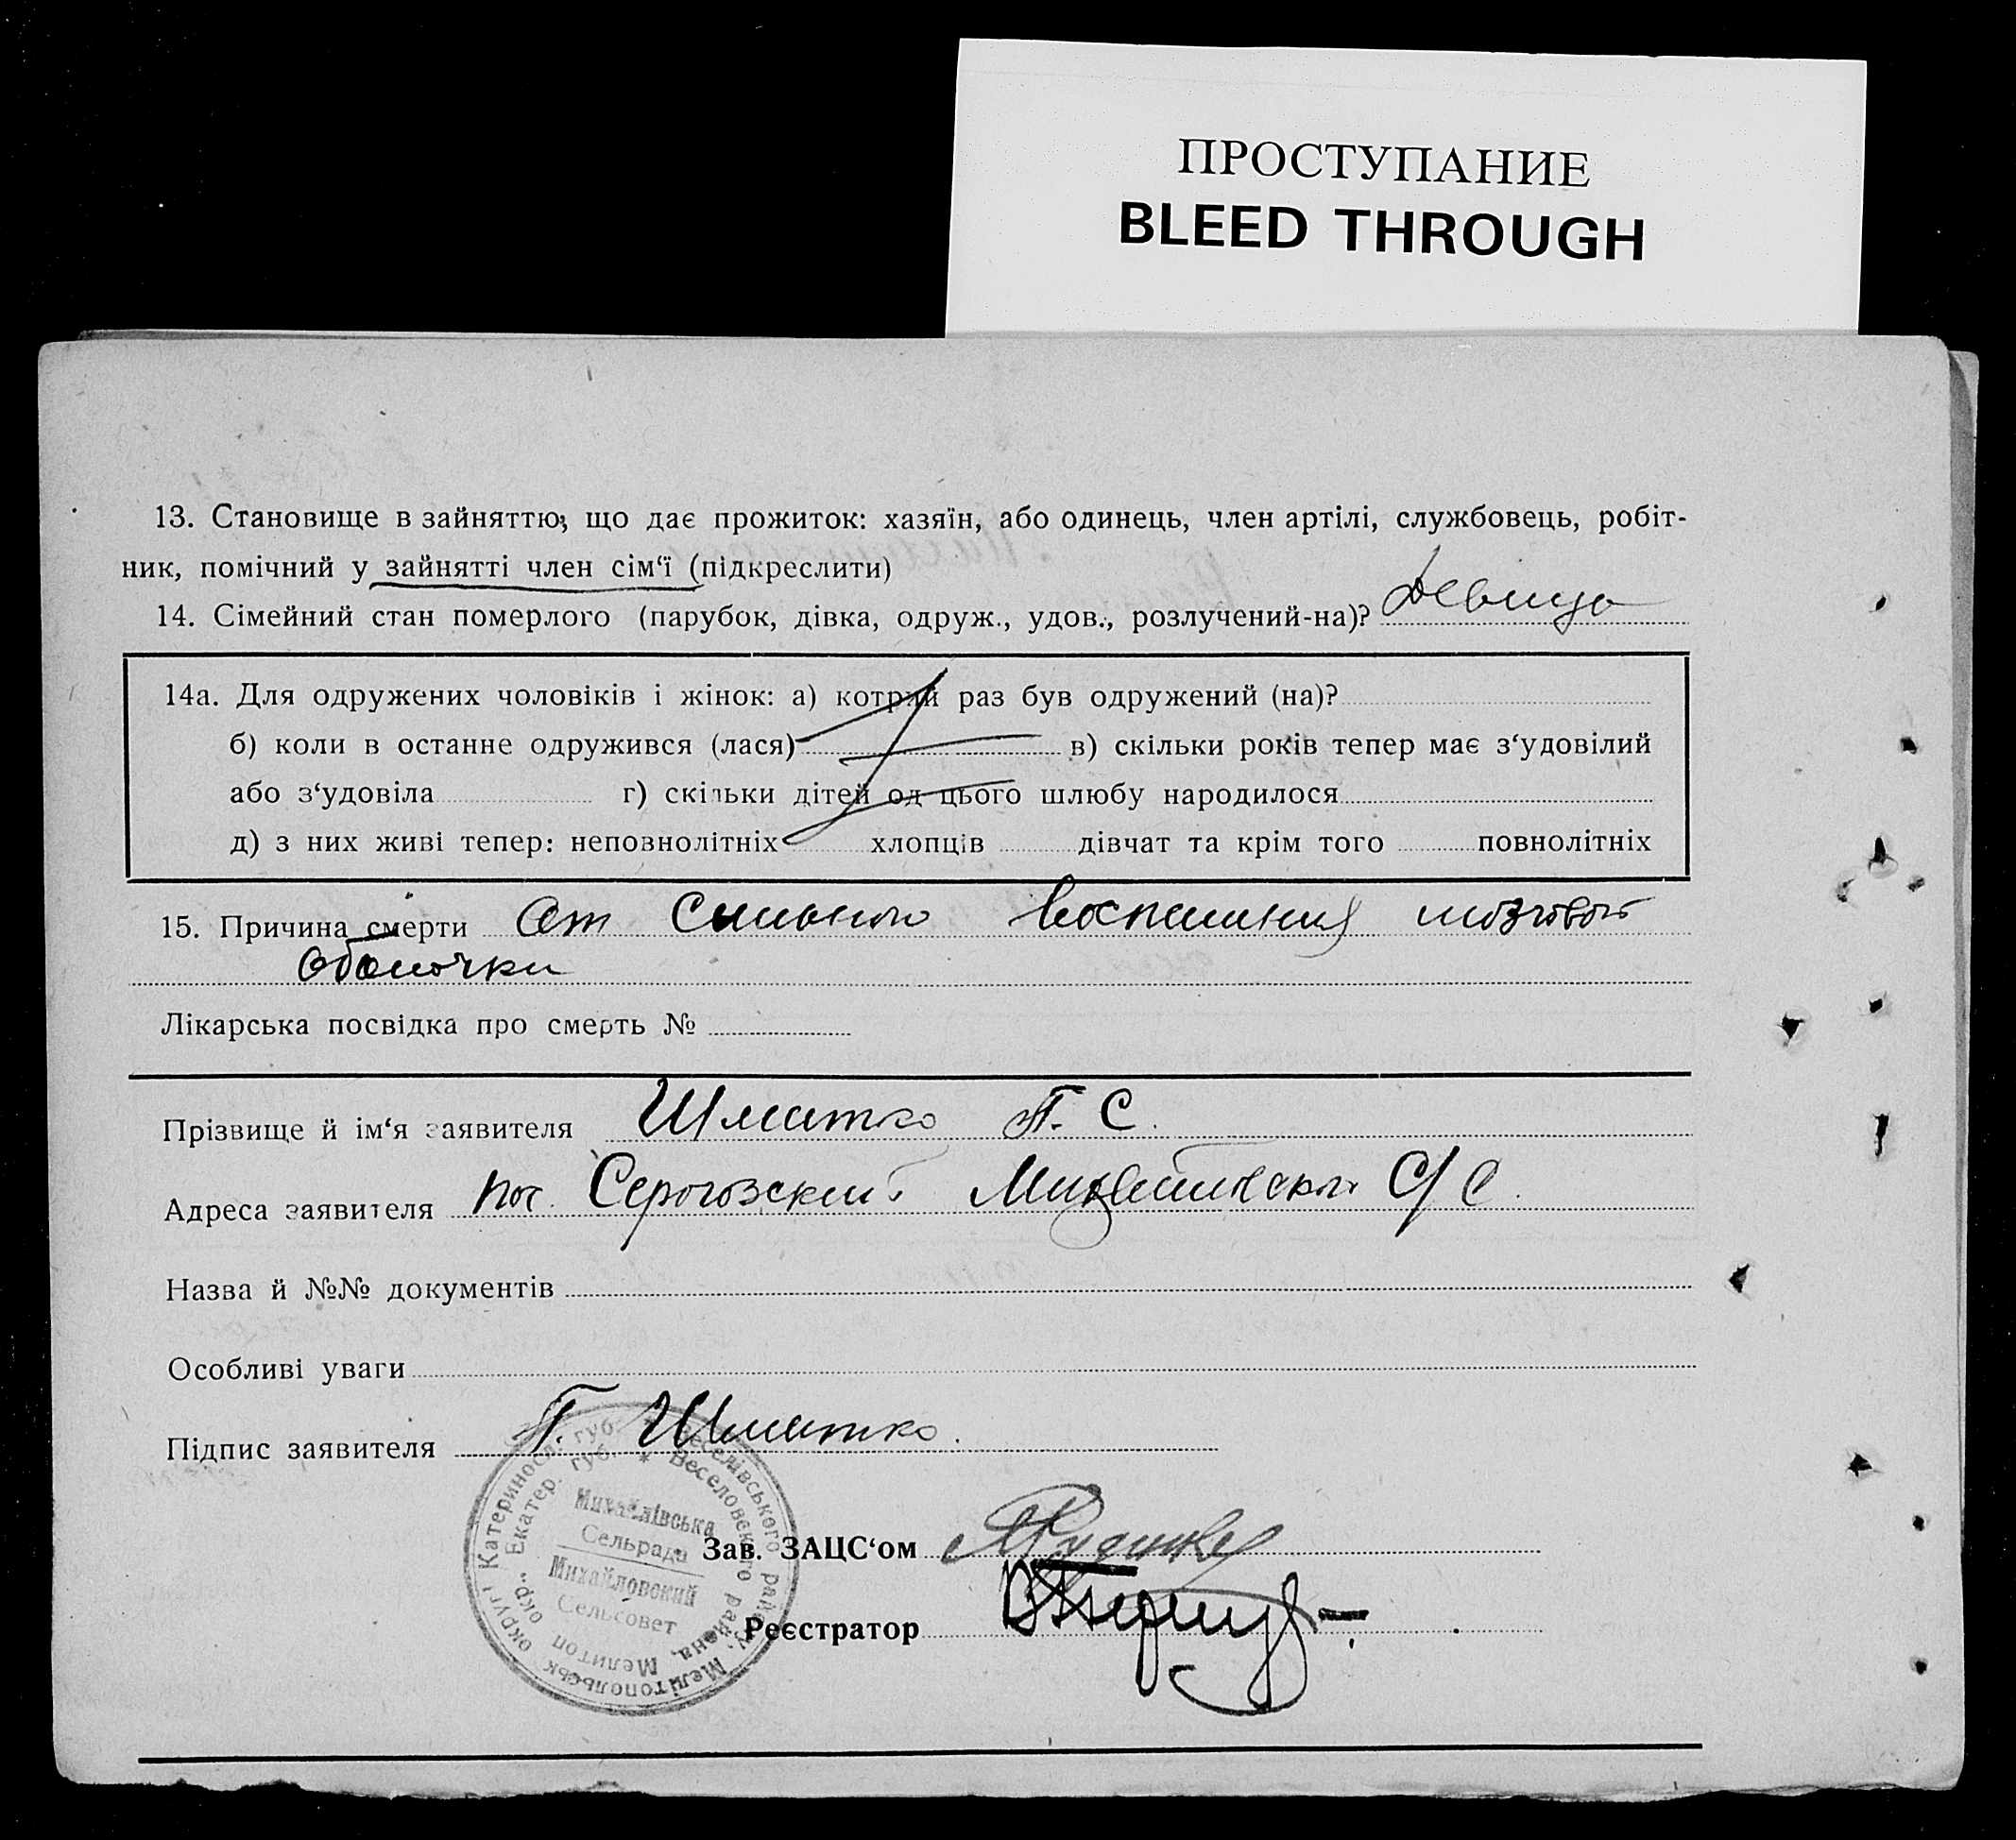 ПРОСТУПАНИЕ
BLEED THROUGH
13. Становище в зайняттю, що дає прожиток: хазяїн, або одинець, член артілі, службовець, робіт-
ник, помічний у зайнятті член сім‘ї (підкреслити)
14. Сімейний стан померлого (парубок, дівка, одруж., удов., розлучений-на)? девица
14а. Для одружених чоловіків і жінок: а) котрий раз був одружений (на)?
б) коли в останне одружився (лася) в) скільки років тепер має з‘удовілий
або з‘удовіла г) скільки дітей од цього шлюбу народилося
д) з них живі тепер: неповнолітніх хлопців дівчат та крім того повнолітніх
15. Причина смерти От сильного воспаления мозговой
оболочки
Лікарська посвідка про смерть №
Прізвище й ім‘я заявителя Шматко П. С.
Адреса заявителя пос. Серогозский С/С.
Назва й №№ документів
Особливі уваги
Підпис заявителя П. Шматко.
Катериносл. губ. * Веселівського району, Мелітопольськ округ
Екатер. губ. * Веселовского района, Мелитоп окр.
Михайлівська
Сельрада
Михайловский
Сельсовет
Зав. ЗАЦС‘ом
Реєстратор